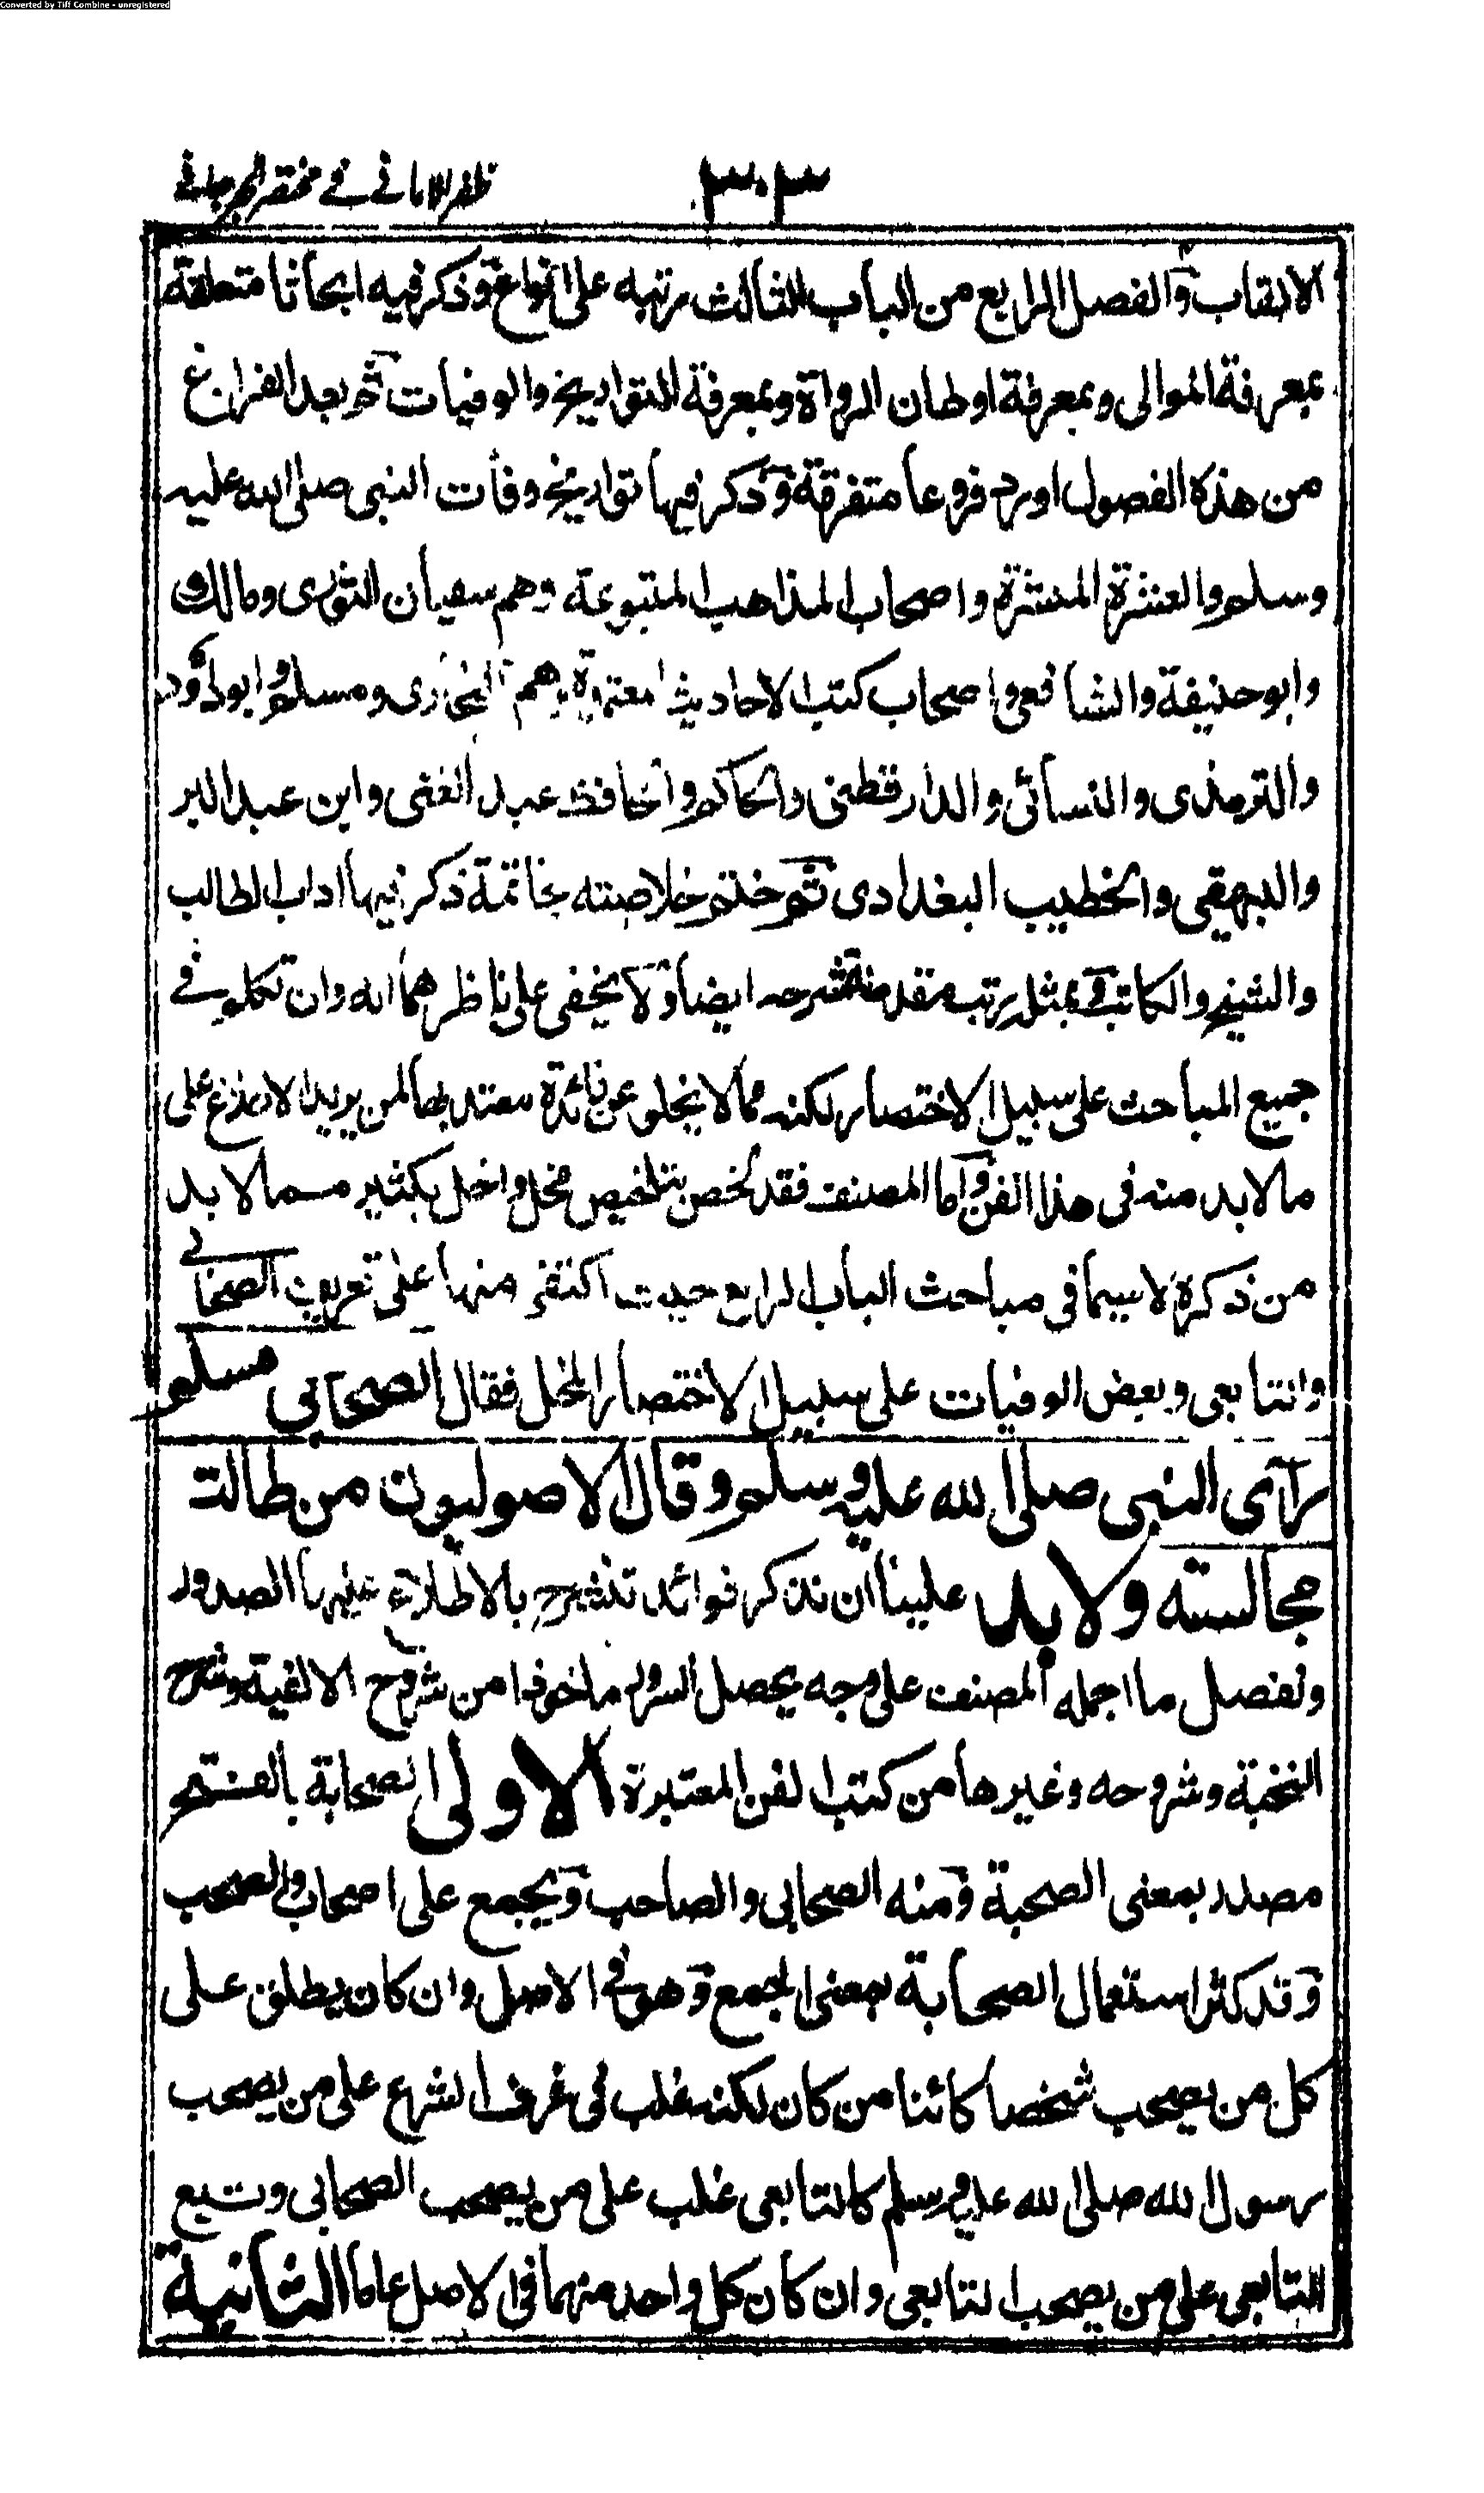 Converted by Tiff Combine - unregistered
ظفر الامانی فی مختصر الجرجانی
٣٠٣
الالقاب والفصل الرابع من الباب الثالث رتبه على انواع وذكر فيه ابحاثا متعلقة
بمعرفة الموالى وبمعرفة اوطان الرواة وبمعرفة التواريخ والوفيات ثم بعد الفراغ
من هذه الفصول اورد فروعا متفرقة وذكر فيها تواريخ وفات النبى صلى الله عليه
وسلم والعشرة المبشرة واصحاب المذاهب المتبوعة وهم سفيان الثورى ومالك و
وابو حنيفة والشافعى واصحاب كتب الاحاديث المعتمدة وهم البخارى ومسلم وابو داود
والترمذى والنسائى والدارقطنى والحاكم والحافظ عبد الغنى وابن عبد البر
والبيهقى والخطيب البغدادى ثم ختم خلاصته بخاتمة ذكر فيها اداب الطالب
والشيخ والكاتب وبمثل رتب مقدمة شرحه ايضا ولا يخفى على ناظرهما انه وان تكلم فى
جميع المباحث على سبيل الاختصار لكنه مما لا يخلو عن فائدة معتد بها لمن يريد الاطلاع على
ما لا بد منه فى هذا الفن واما المصنف فقد لخص بتلخيص مخل واخل بكثير مما لا بد
من ذكره لا سيما فى مباحث الباب الرابع حيث اكتفى منها على تعريف الصحابى
والتابعى وبعض الوفيات على سبيل الاختصار المخل فقال الصحابى مسلم
رآى النبى صلى الله عليه وسلم وقال الاصوليون من طالت
مجالسته ولا بد علينا ان نذكر فوائد تنشرح بالاطلاع عليها الصدور
ونفصل ما اجمله المصنف على وجه يحصل السرور ماخوذا من شروح الالفية وشرح
النخبة وشروحه وغيرها من كتب الفن المعتبرة الاولى الصحابة بالفتح
مصدر بمعنى الصحبة ومنه الصحابى والصاحب ويجمع على اصحاب والصحب
وقد كثر استعمال الصحابة بمعنى الجمع وهو فى الاصل وان كان يطلق على
كل من يصحب شخصا كائنا من كان لكنه غلب فى عرف الشرع على من يصحب
رسول الله صلى الله عليه وسلم كالتابعى غلب على من يصحب الصحابى وتبع
التابعى على من يصحب التابعى وان كان كل واحد منهما فى الاصل عاما الثانية